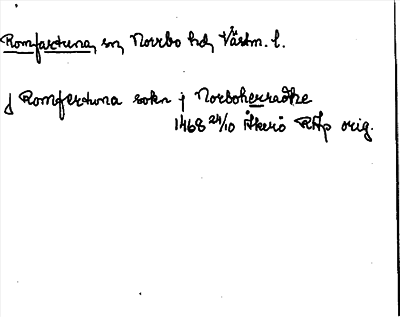 Romfartuna, sn, Norrbo hd, Västm. l.
J Romfertuna sokn j Norboherradhe
1468 24/10 Åkerö RAp orig.